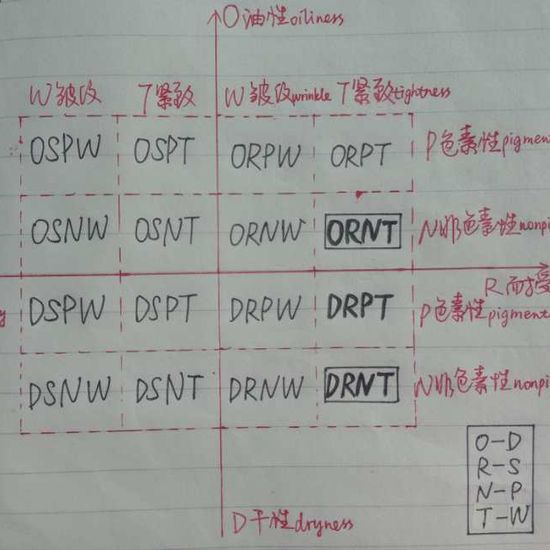 O油性oiliness
W皱纹 T紧致 W皱纹wrinkle T紧致tightness
OSPW OSPT ORPW ORPT P色素性pigmen
OSNW OSNT ORNW ORNT N非色素性nonpi
R耐受
DSPW DSPT DRPW DRPT P色素性pigment
DSNW DSNT DRNW DRNT N非色素性nonpi
O-D
R-S
N-P
T-W
D干性dryness